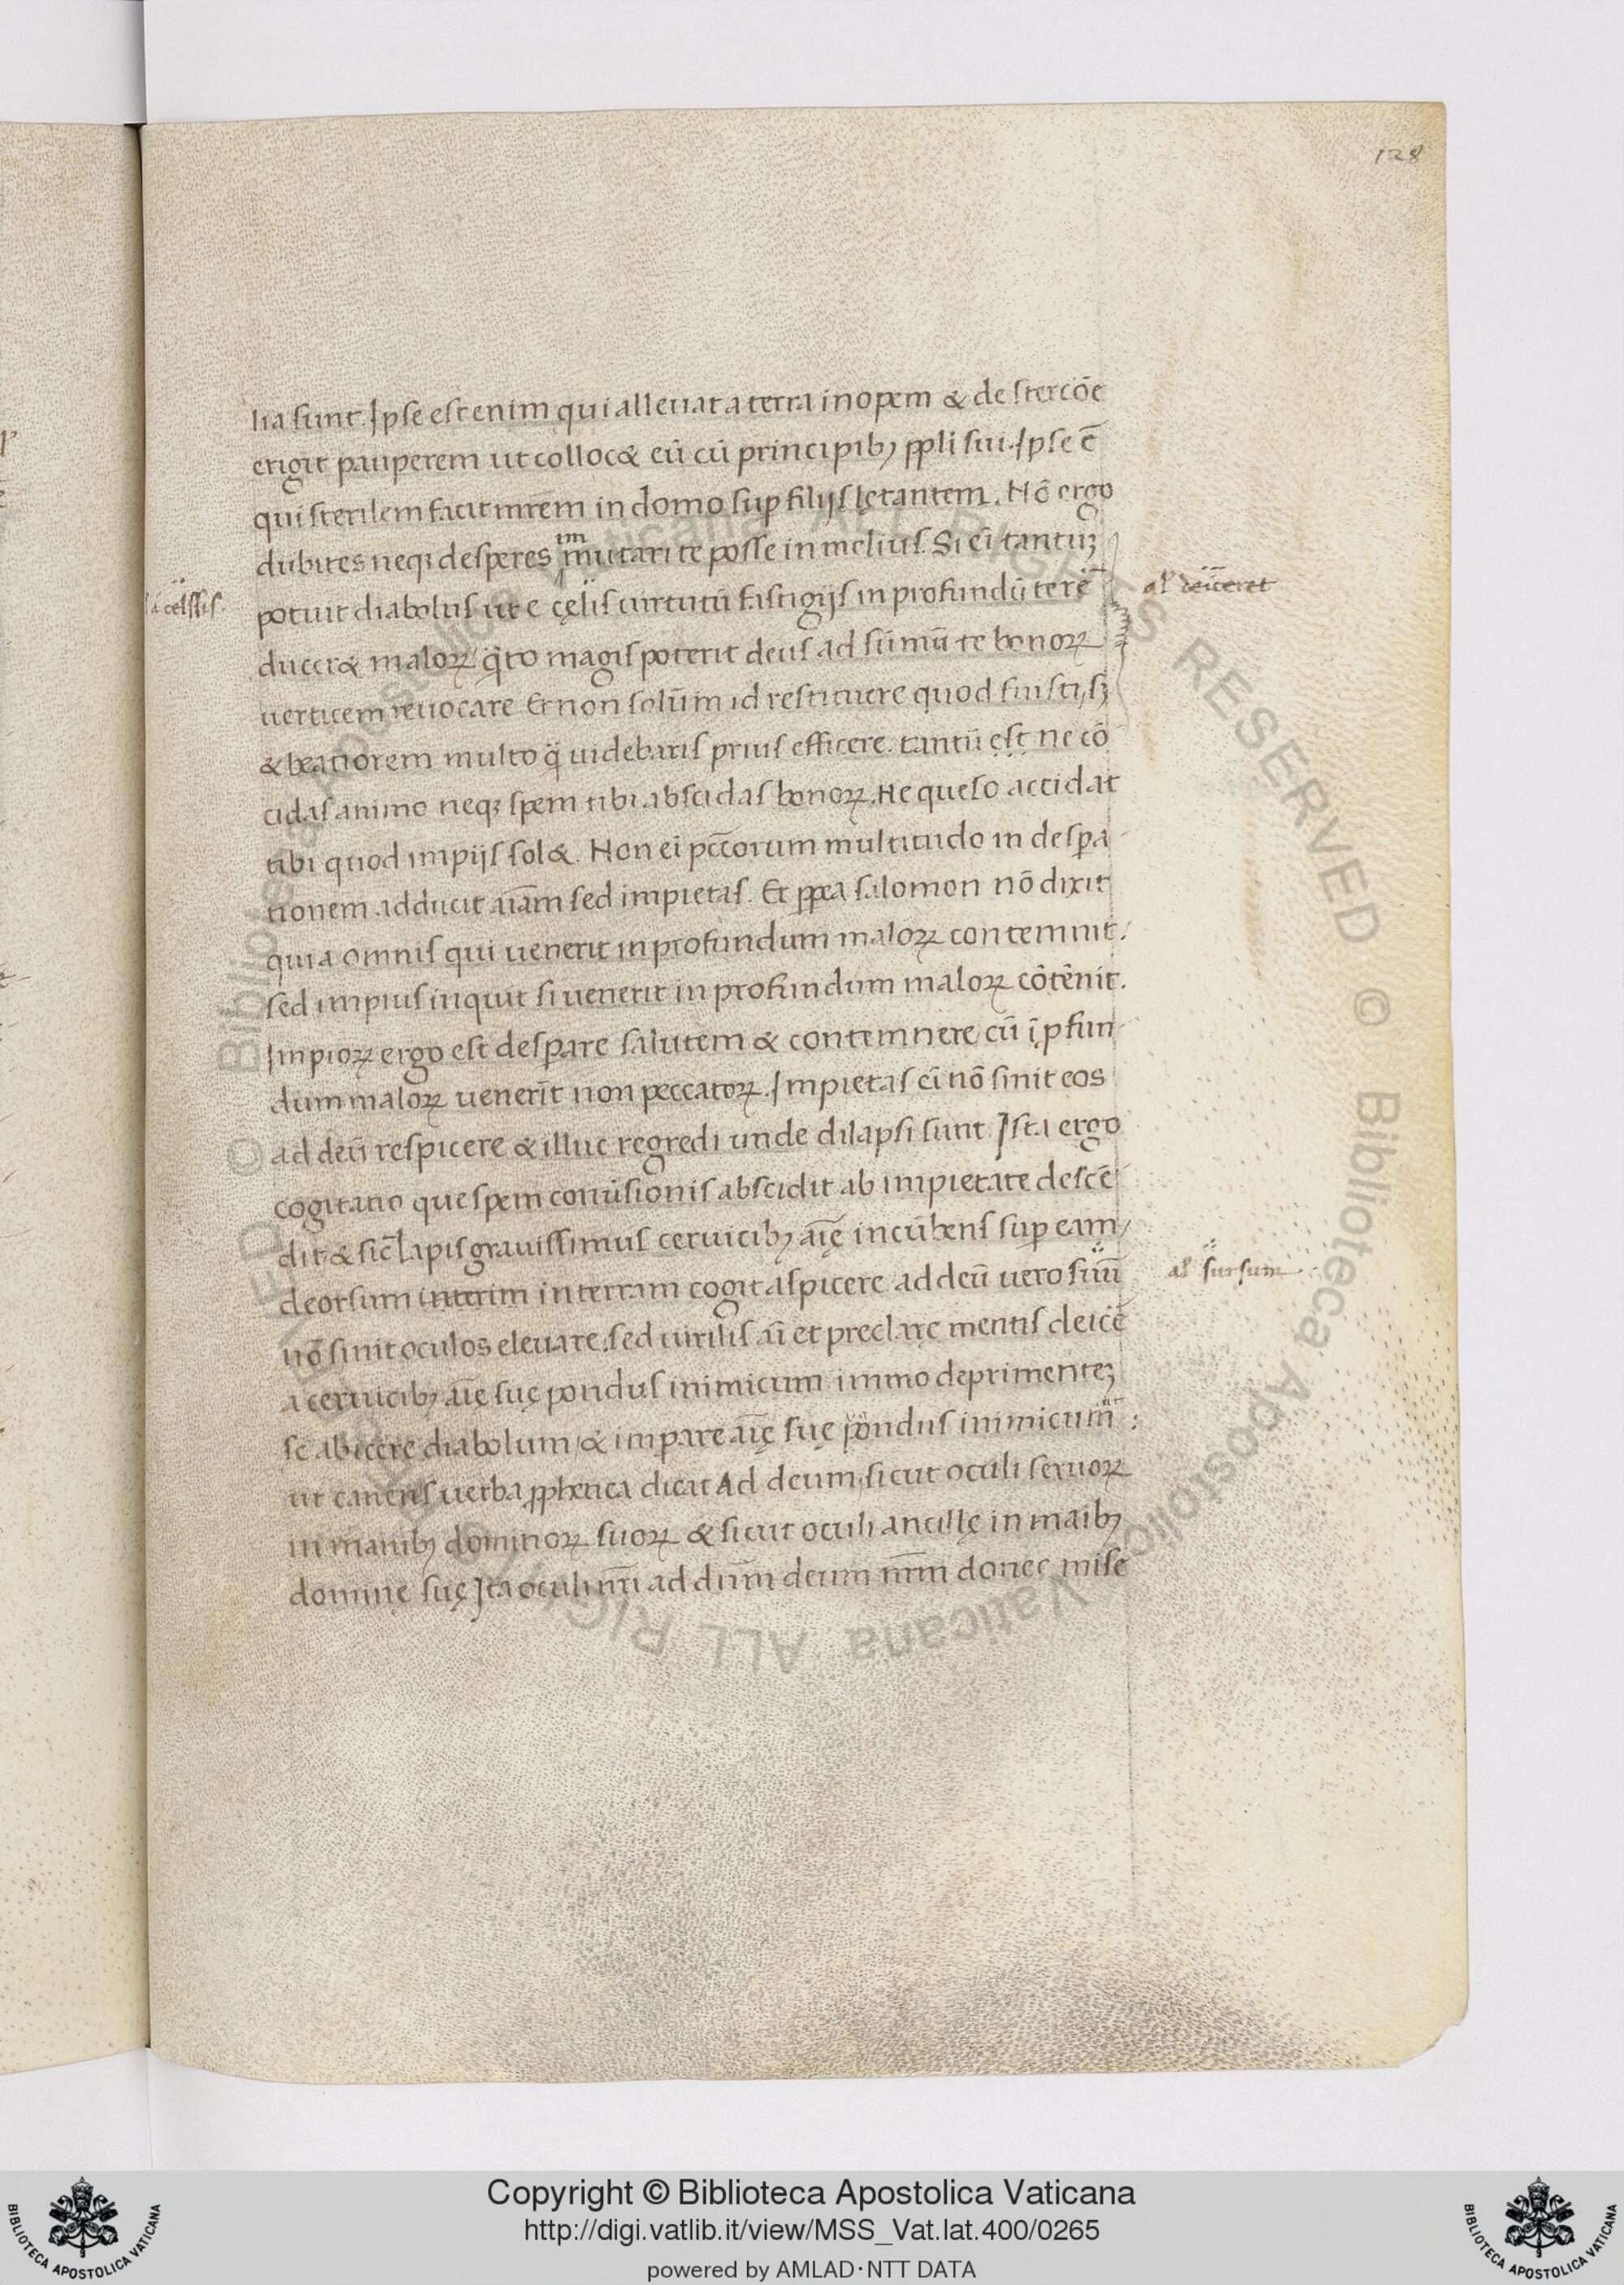 128
lia sunt. Ipse est enim qui alleuat a terra inopem & de stercōe
erigit pauperem ut colloc& eū cū principibꝫ ppli sui. Ipse ē
qui sterilem facit mr̄em in domo suꝑ filijs lętantem. Nō ergo
dubites neqꝫ desperes tm̄ mutari te posse in melius. Si ei tantuꝫ
a celssis.
potuit diabolus ut e cęlis uirtutū fastigijs in profundū te rē
al' deiceret
ducer& maloꝝ q̄to magis poterit deus ad sūmū te bonoꝝ
uerticem reuocare Et non solūm id restituere quod fuisti, sꝫ
& beatiorem multo q̄ uidebaris prius efficere. tantū ęst ne cō
cidas animo neqꝫ spem tibi abscidas bonoꝝ. Ne queso accidat
tibi quod impijs sol&. Non ei pcc̄orum multitudo in despa
tionem adducit aīam sed impietas. Et ꝓpea salomon nō dixit
quia omnis qui uenerit in profundum maloꝝ contemnit.
sed impius inquit si uenerit in profundum maloꝝ cōtēnit.
Impioꝝ ergo est desꝑare salutem & contemnere cū ī ꝓfun
dum maloꝝ uenerīt non peccatoꝝ. Impietas ei nō sinit eos
ad deū respicere & illuc regredi unde dilapsi sunt. Ista ergo
cogitatio que spem conūsionis abscidit ab impietate descē
dit & sic lapis grauissimus ceruicibꝫ aīę incūbens suꝑ eam
deorsum interim in terram cogit aspicere ad deū uero suū
al' sursum
nō sinit oculos eleuare, sed uirilis aī et preclarę mentis deicē
a ceruicibꝫ aīę suę pondus inimicum immo deprimenteꝫ
se abicere diabolum & imꝑare aīę suę pondus inimicum
ut canens uerba ꝓphetica dicat Ad deum, sicut oculi seruoꝝ
in manibꝫ dominoꝝ suoꝝ & sicut oculi ancillę in maībꝫ
dominę suę Ita oculi nr̄i ad dn̄m deum nr̄m donec mise
Copyright © Biblioteca Apostolica Vaticana
http://digi.vatlib.it/view/MSS_Vat.lat.400/0265
powered by AMLAD·NTT DATA
BIBLIOTECA APOSTOLICA VATICANA
BIBLIOTECA APOSTOLICA VATICANA